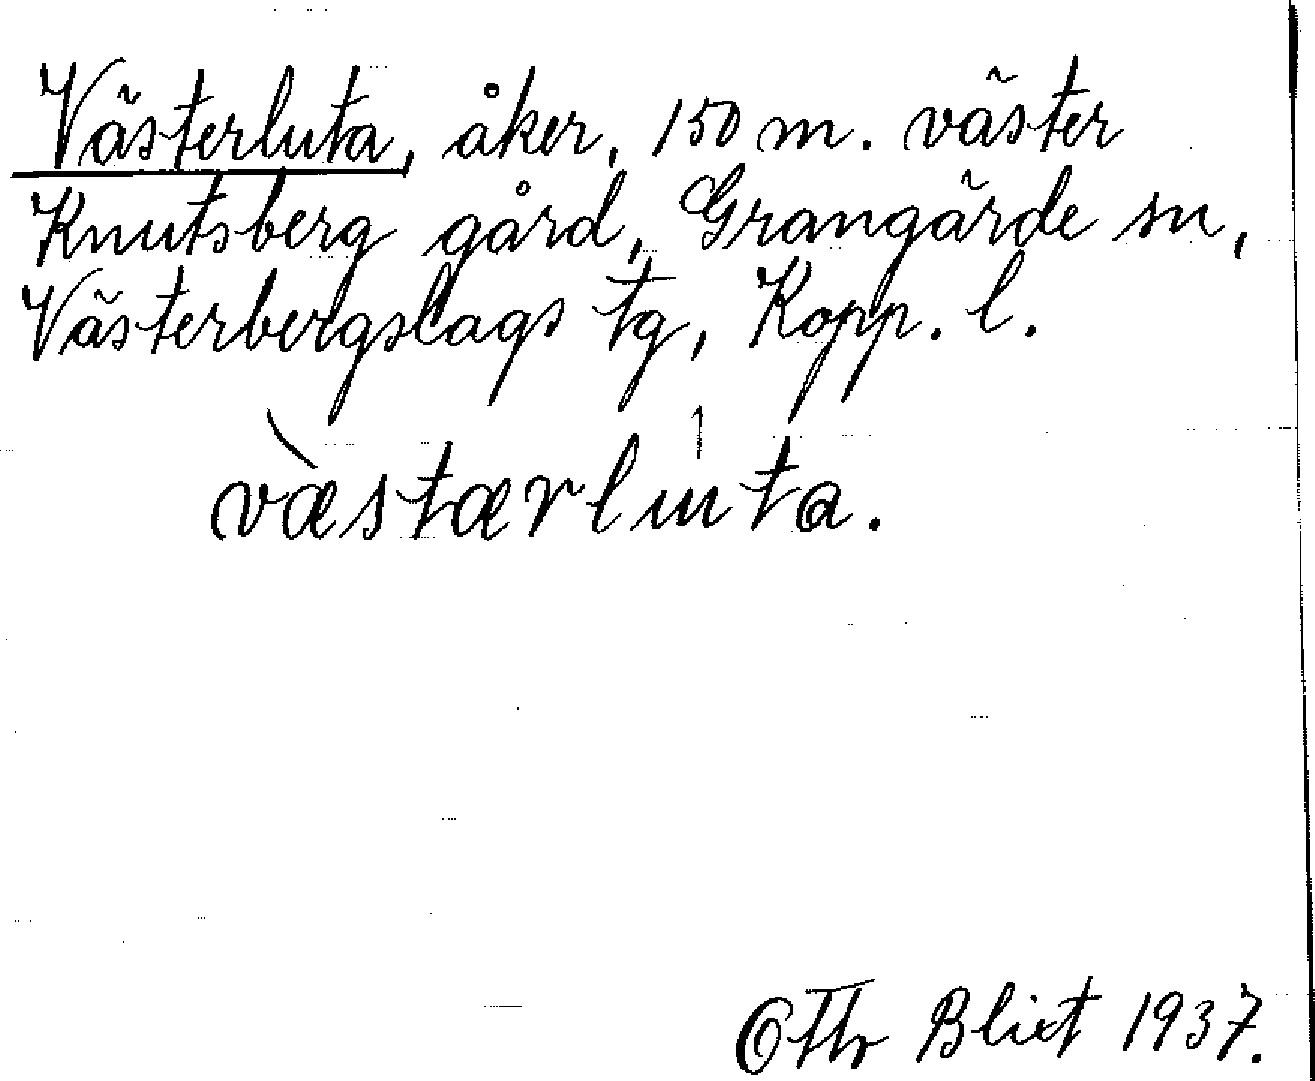 Västerluta, åker, 150 m. väster
Knutsberg gård, Grangärde sn,
Västerbergslags tg, Kopp. l.
væ̀stærlu̍ta.
Othr Blixt 1937.